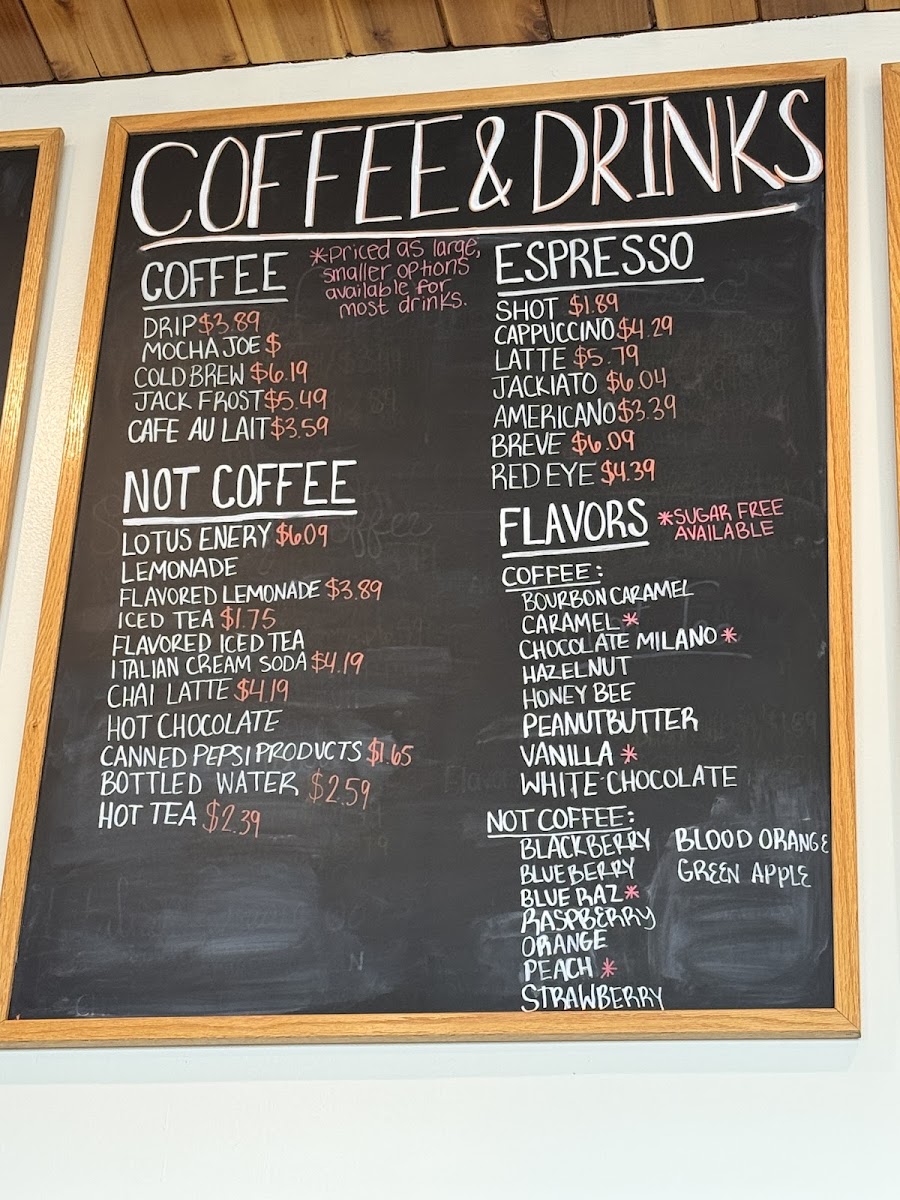 COFFEE & DRINKS
COFFEE
*priced as large,
smaller options
available for
most drinks.
DRIP $3.89
MOCHA JOE $
COLD BREW $6.19
JACK FROST $5.49
CAFE AU LAIT $3.59
NOT COFFEE
LOTUS ENERY $6.09
LEMONADE
FLAVORED LEMONADE $3.89
ICED TEA $1.75
FLAVORED ICED TEA
ITALIAN CREAM SODA $4.19
CHAI LATTE $4.19
HOT CHOCOLATE
CANNED PEPSI PRODUCTS $1.65
BOTTLED WATER $2.59
HOT TEA $2.39
ESPRESSO
SHOT $1.89
CAPPUCCINO $4.29
LATTE $5.79
JACKIATO $6.04
AMERICANO $3.39
BREVE $6.09
RED EYE $4.39
FLAVORS *SUGAR FREE
AVAILABLE
COFFEE:
BOURBON CARAMEL
CARAMEL *
CHOCOLATE MILANO *
HAZELNUT
HONEY BEE
PEANUTBUTTER
VANILLA *
WHITE CHOCOLATE
NOT COFFEE:
BLACKBERRY BLOOD ORANGE
BLUEBERRY GREEN APPLE
BLUE RAZ *
RASPBERRY
ORANGE
PEACH *
STRAWBERRY